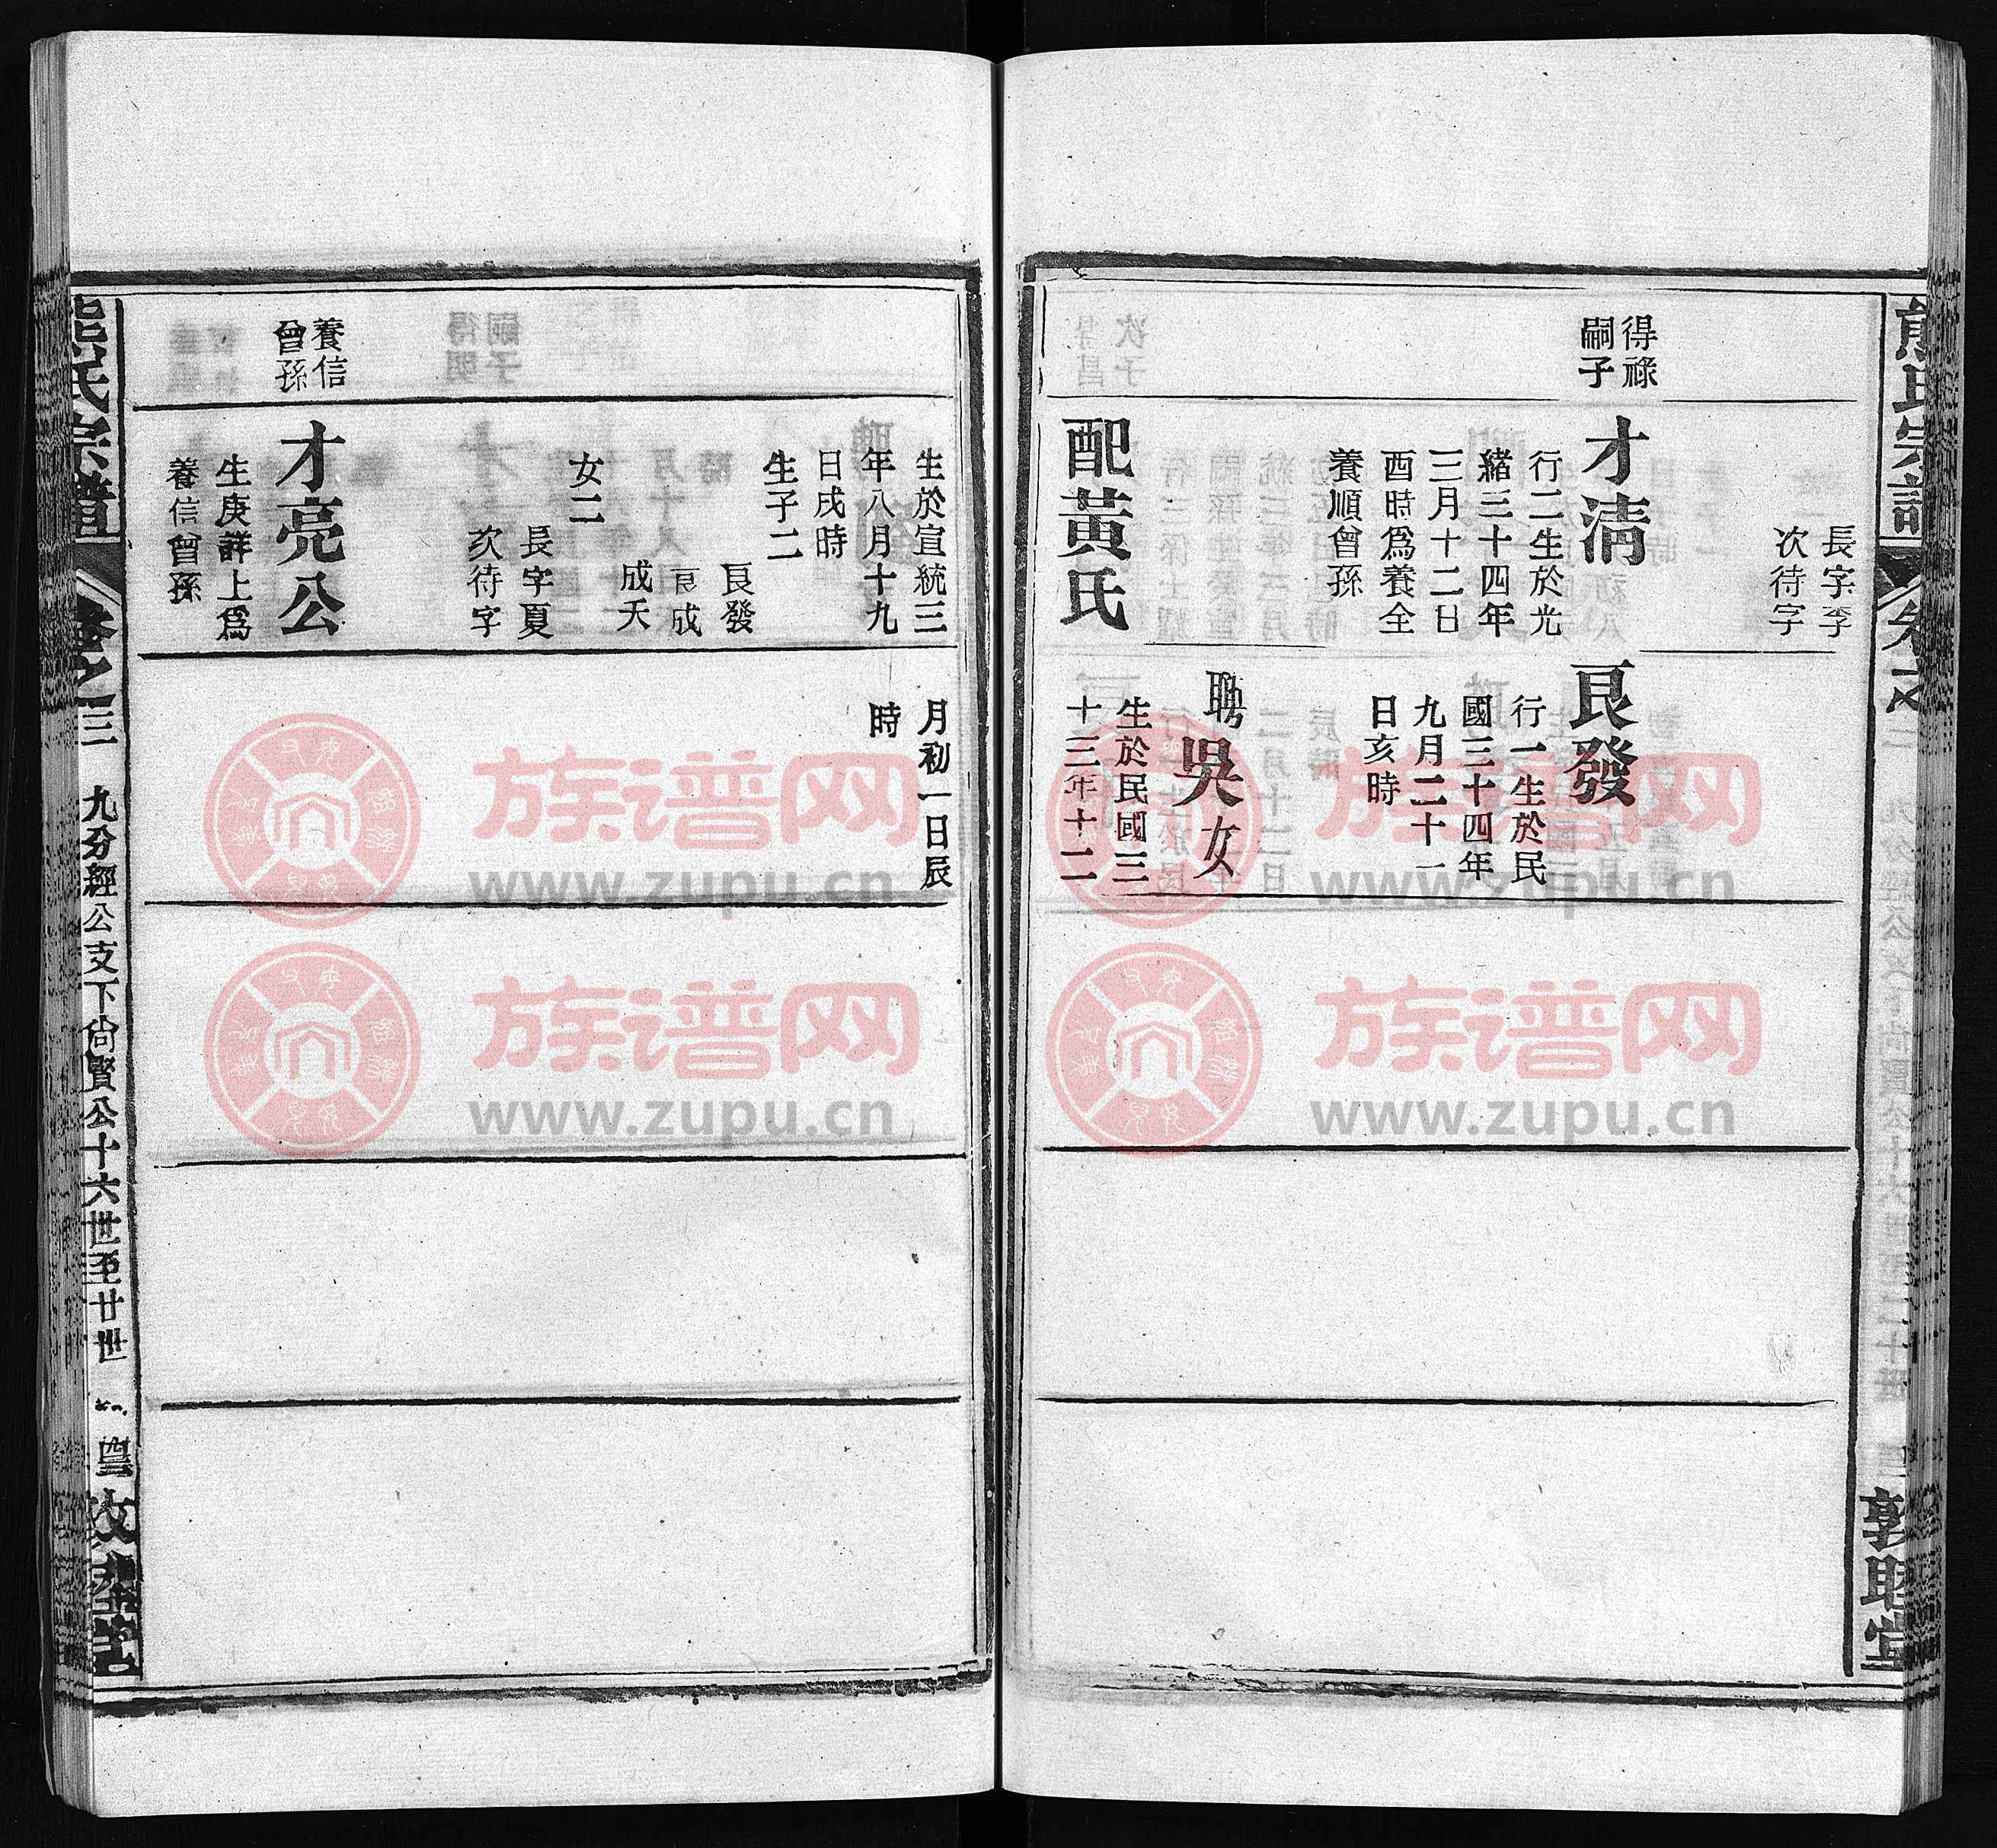 長字李
次待字
得祿
嗣子
才清
行二生於光
緒三十四年
三月十二日
酉時爲養全
養順曾孫
配黃氏
艮發
行一生於民
國三十四年
九月二十一
日亥時
聘吳女
生於民國三
十三年十二
敦睦堂
生於宣統三
年八月十九
日戌時
生子二
艮發
艮成
成夭
女二
長字夏
次待字
月初一日辰
時
養信
曾孫
才亮公
生庚詳上爲
養信曾孫
熊氏宗譜
卷之三
九分經公支下尙賢公十六世至廿世
族谱网
www.zupu.cn
族谱网
www.zupu.cn
族谱网
www.zupu.cn
族谱网
www.zupu.cn